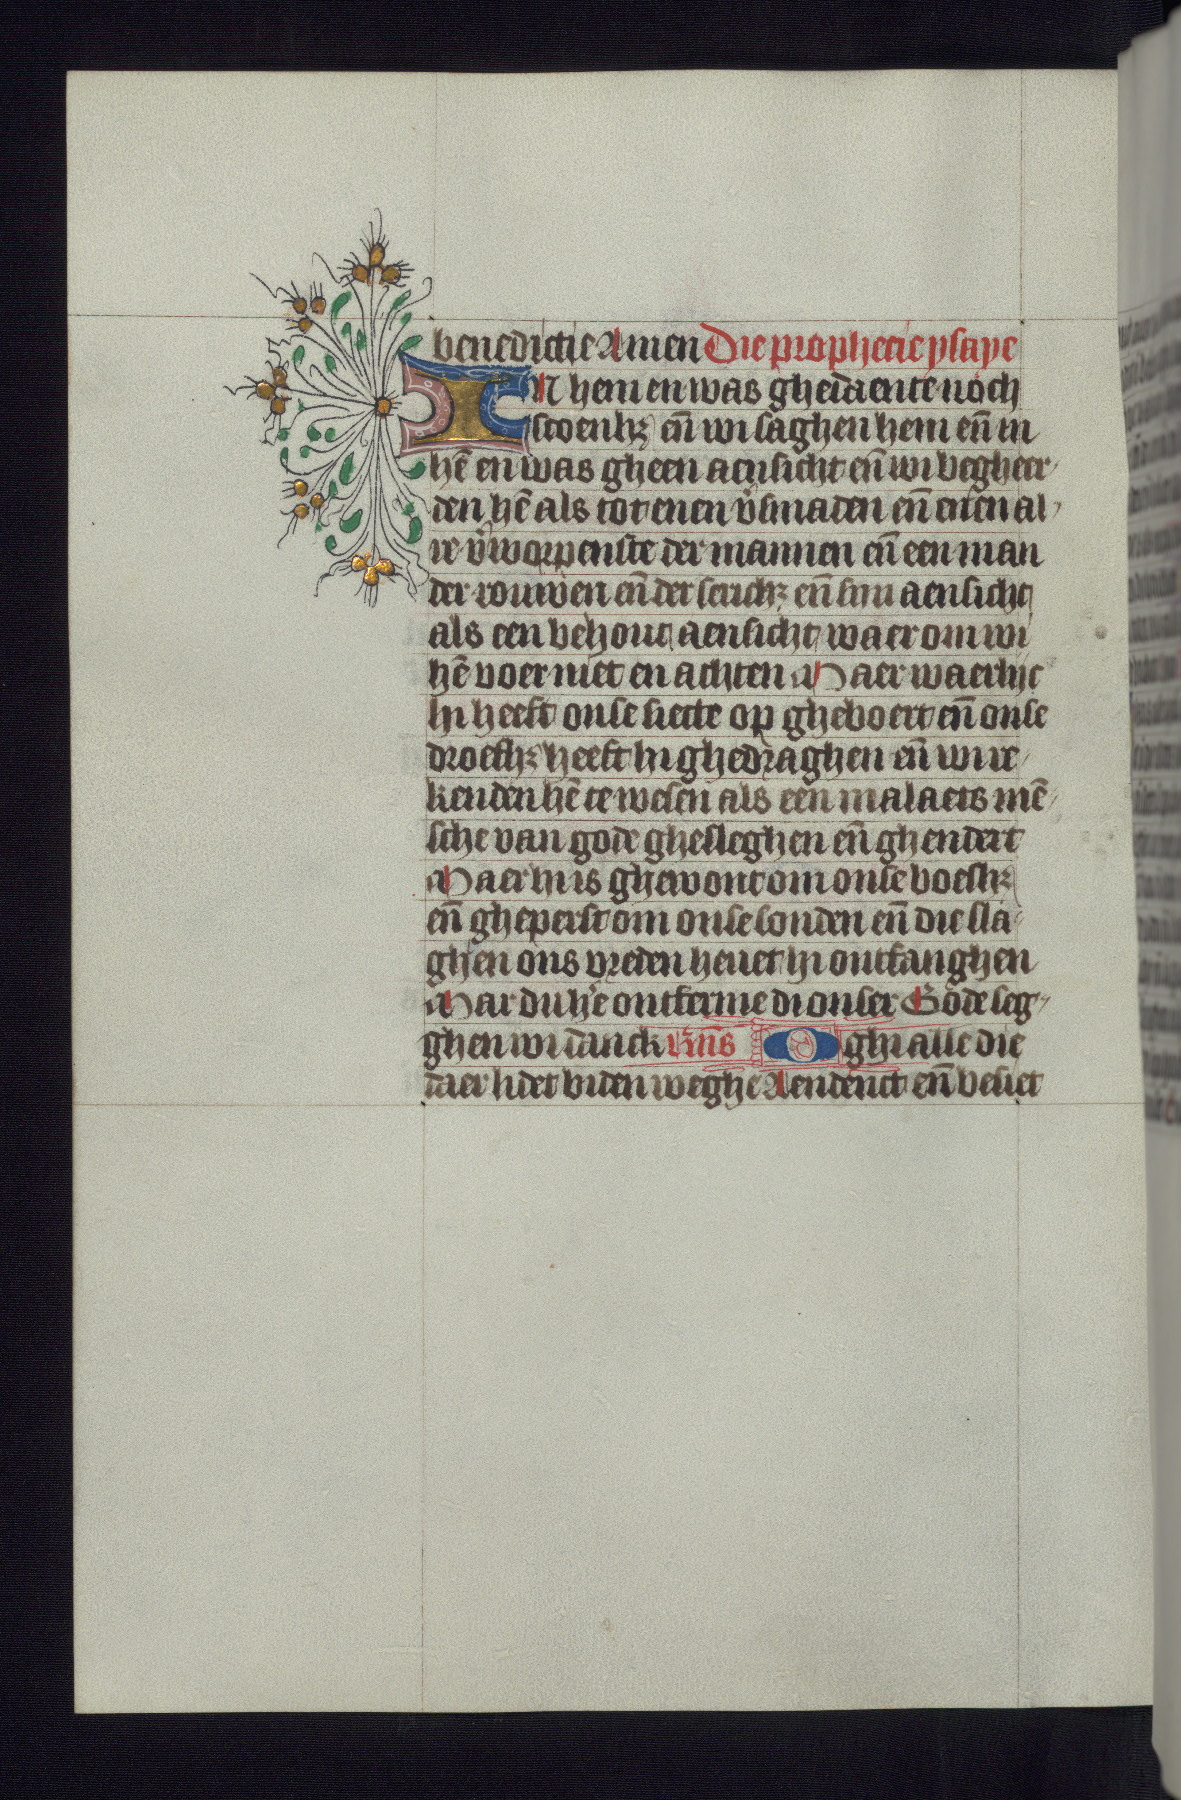 benedictie Amen Die prophecie ysaye
IN hem en was gheidaente noch
scoenhꝫ en̄ wi saghen hem en̄ in
hē en was gheen aensicht en̄ wi begheer
den hē als tot enen v̾smaden en̄ enen al
re v̾worpenste der mannen en̄ een man
der rouwen en̄ der seuchꝫ en̄ sijn aensicht
als een behout aensicht waer om wi
hē voer niet en achten Maer waerlijc
hi heeft onse siecte op gheboert en̄ onse
droefhꝫ heeft hi ghedraghen en̄ wi re
kenden hē te wesen als een malaets mē
sche van gode ghesleghen en̄ ghendert
Maer hi is ghewont om onse boeshꝫ
en̄ gheperst om onse sonden en̄ die sla
ghen ons vreden heuet hi ontfanghen
Mar du he ontferme di onser Gode seg
ghen wi danck v̾s O ghi alle die
daer lidet biden weghe Aendenct en̄ besiet